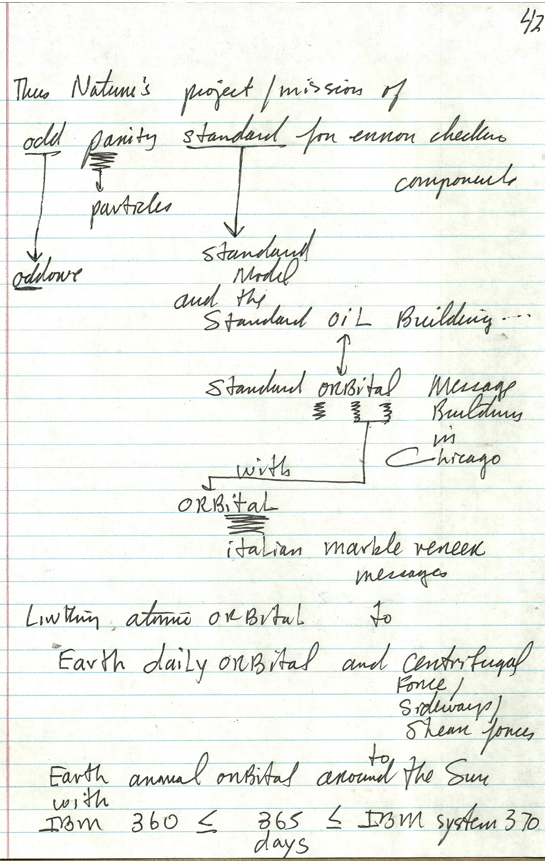 42
Thus Nature's project/mission of
odd parity standard for error checker
components
particles
oddowe
Standard
Model
and the
Standard OiL Building ....
Standard ORBital Message
Building
in
Chicago
with
ORBitaL
italian marble veneer
messages
Linking atomic ORBitaL to
Earth daily ORBital and centrifugal
Force/
Sideways/
Shear forces
Earth annual orbital around the Sun
to
with
IBM 360 ≤ 365 ≤ IBM system 370
days